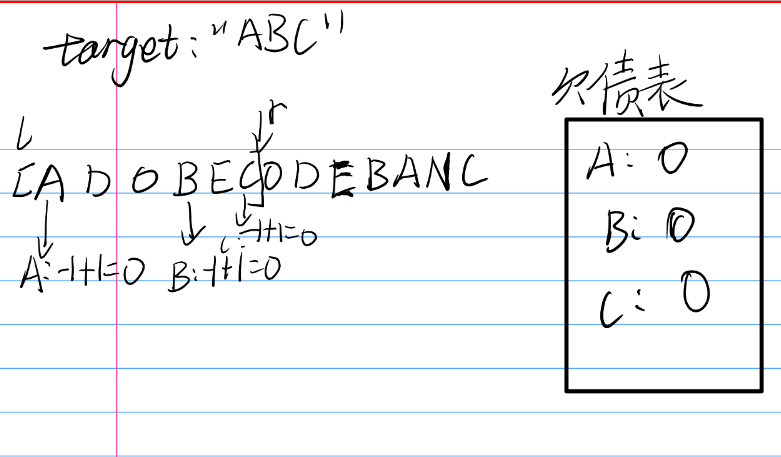 target: "ABC"
欠债表
l
r
[ADOBEC]ODEBANC
A: -1+1=0
B: -1+1=0
C: -1+1=0
A: 0
B: 0
C: 0